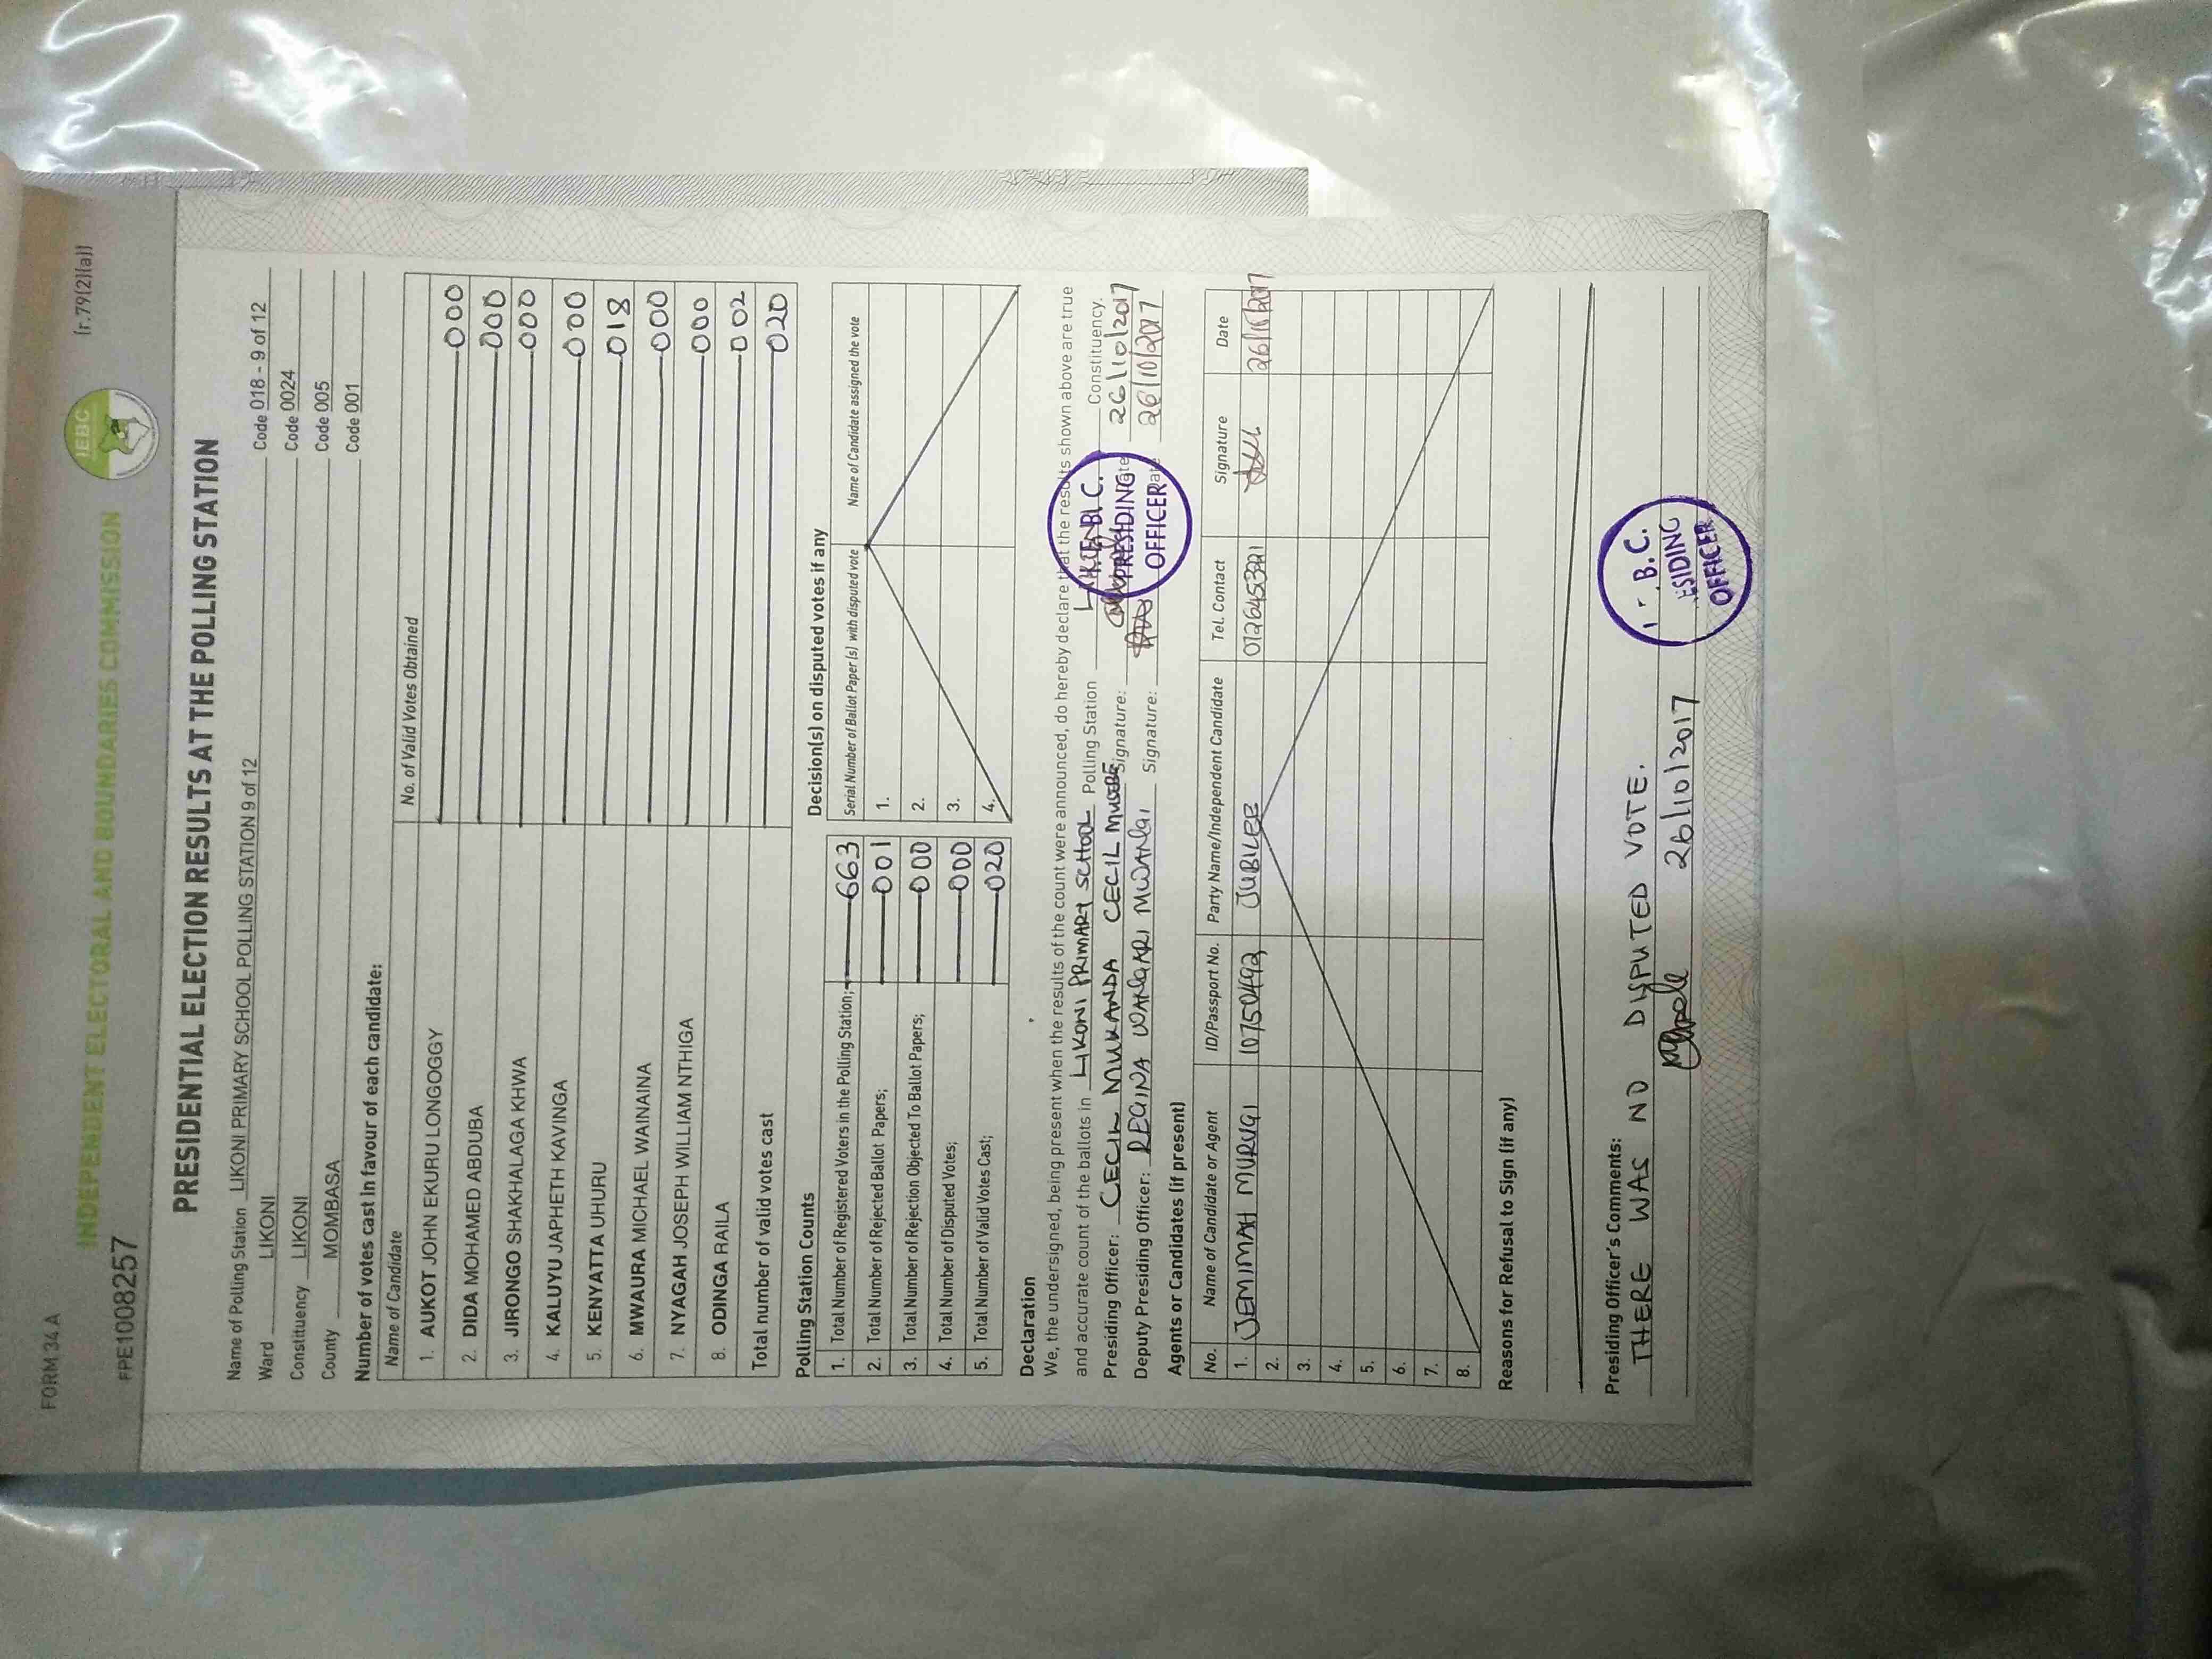 FORM 34 A
(r.79(2)(a))
IEBC
INDEPENDENT ELECTORAL AND BOUNDARIES COMMISSION
FPE1008257
PRESIDENTIAL ELECTION RESULTS AT THE POLLING STATION
Name of Polling Station LIKONI PRIMARY SCHOOL POLLING STATION 9 of 12 Code 018 - 9 of 12
Ward LIKONI Code 0024
Constituency LIKONI Code 005
County MOMBASA Code 001
Number of votes cast in favour of each candidate:
Name of Candidate No. of Valid Votes Obtained
1. AUKOT JOHN EKURU LONGOGGY 000
2. DIDA MOHAMED ABDUBA 000
3. JIRONGO SHAKHALAGA KHWA 000
4. KALUYU JAPHETH KAVINGA 000
5. KENYATTA UHURU 018
6. MWAURA MICHAEL WAINAINA 000
7. NYAGAH JOSEPH WILLIAM NTHIGA 000
8. ODINGA RAILA 002
Total number of valid votes cast 020
Polling Station Counts
1. Total Number of Registered Voters in the Polling Station; 663
2. Total Number of Rejected Ballot Papers; 001
3. Total Number of Rejection Objected To Ballot Papers; 000
4. Total Number of Disputed Votes; 000
5. Total Number of Valid Votes Cast; 020
Decision(s) on disputed votes if any
Serial Number of Ballot Paper (s) with disputed vote Name of Candidate assigned the vote
1.
2.
3.
4.
Declaration
We, the undersigned, being present when the results of the count were announced, do hereby declare that the results shown above are true
and accurate count of the ballots in LIKONI PRIMARY SCHOOL Polling Station LIKONI Constituency.
Presiding Officer: CECIL MUKANDA CECIL Signature: Date 26/10/2017
Deputy Presiding Officer: REGINA WANGARI MWANGI Signature: Date 26/10/2017
PRESIDING
OFFICER
Agents or Candidates (if present)
No. Name of Candidate or Agent ID/Passport No. Party Name/Independent Candidate Tel. Contact Signature Date
1. JEMIMAH MURUGI 10750492 JUBILEE 0726453921
2.
3.
4.
5.
6.
7.
8.
Reasons for Refusal to Sign (if any)
Presiding Officer's Comments:
THERE WAS NO DISPUTED VOTE.
26/10/2017
B.C.
ESIDING
OFFICER